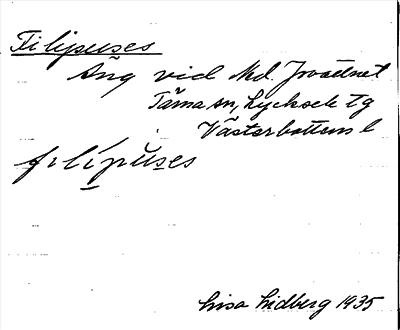 Filipuses
Äng vid Md.
Tärna sn, Lycksele tg
Västerbottens l
filípŭses
Lisa Lidberg 1935